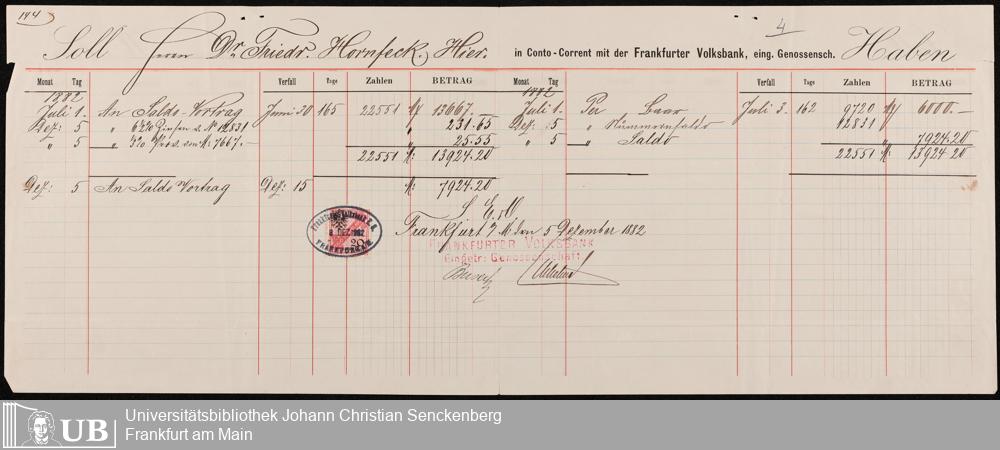 144
4
Soll Herrn Dr. Friedr. Hornfeck, Hier. in Conto-Corrent mit der Frankfurter Volksbank, eing. Genossensch. Haben
Monat Tag Verfall Tage Zahlen BETRAG Monat Tag Verfall Tage Zahlen BETRAG
1882 1882
Juli 1. An Saldo-Vortrag Juni 30 165 22551 M 13667.— Juli 1. Per Baar Juli 3. 162 9720 M 6000.—
Dez: 5 " 6% Zinsen a. No 12831 " 231.65 Dez: 5 " Nummernsaldo 12831
" 5 " Prov. von M: 7667.— " 25.55 " 5 " Saldo " 7924.20
22551 M: 13924.20 22551 M: 13924.20
Dez: 5 An Saldo Vortrag Dez: 15 M: 7924.20
S. E. & O.
Frankfurt a/M. den 5 Dezember 1882
FRANKFURTER VOLKSBANK
Eingetr: Genossenschaft
8 DEZ 1882
FRANKFURT A/M
20
UB
Universitätsbibliothek Johann Christian Senckenberg
Frankfurt am Main